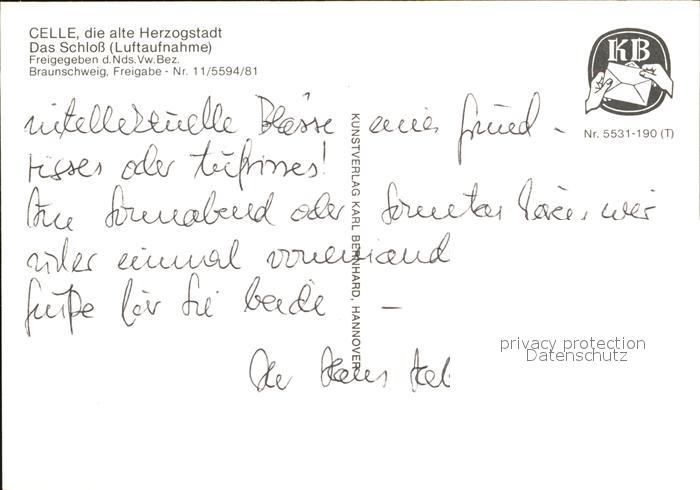 CELLE, die alte Herzogstadt
Das Schloß (Luftaufnahme)
Freigegeben d.Nds.Vw.Bez.
Braunschweig, Freigabe - Nr. 11/5594/81
KB
Nr. 5531-190 (T)
intellektuelle Blässe eines Grund-
risses oder
Am Sonnabend oder Sonntag hören wir
wieder einmal voneinand
Grüße für Sie beide —
Ihr
KUNSTVERLAG KARL BERNHARD, HANNOVER
privacy protection
Datenschutz